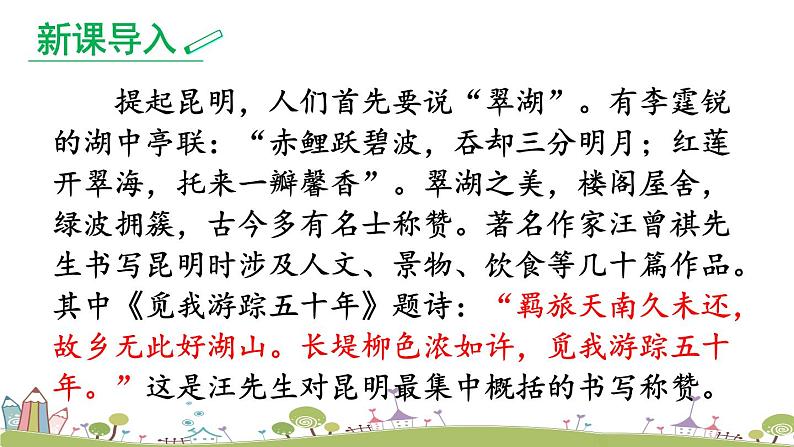 新课导入
提起昆明，人们首先要说“翠湖”。有李霆锐
的湖中亭联：“赤鲤跃碧波，吞却三分明月；红莲
开翠海，托来一瓣馨香”。翠湖之美，楼阁屋舍，
绿波拥簇，古今多有名士称赞。著名作家汪曾祺先
生书写昆明时涉及人文、景物、饮食等几十篇作品。
其中《觅我游踪五十年》题诗：“羁旅天南久未还，
故乡无此好湖山。长堤柳色浓如许，觅我游踪五十
年。”这是汪先生对昆明最集中概括的书写称赞。